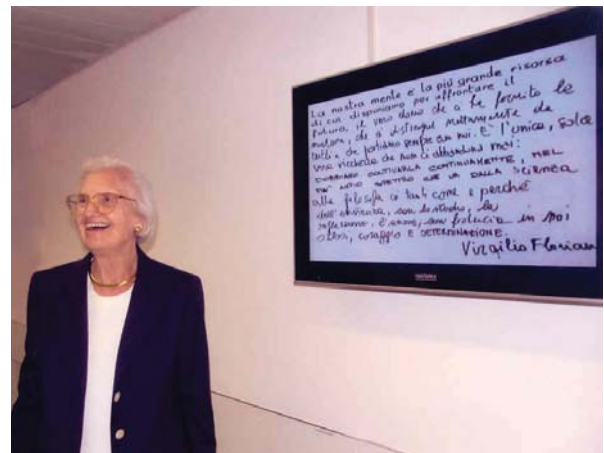 La nostra mente è la più grande risorsa
di cui disponiamo per affrontare il
futuro, il vero dono che ci ha fornito la
natura, che ci distingue nettamente da
tutti e che portiamo sempre con noi. È l'unica, sola
vera ricchezza che non ci abbandona mai:
DOBBIAMO COLTIVARLA CONTINUAMENTE, NEL
PIÙ VASTO SPETTRO CHE VA DALLA SCIENZA
alla filosofia ai tanti come e perché
dell'esistenza, con lo studio, la
riflessione, con fiducia in noi
stessi, coraggio E DETERMINAZIONE.
Virgilio Floriani